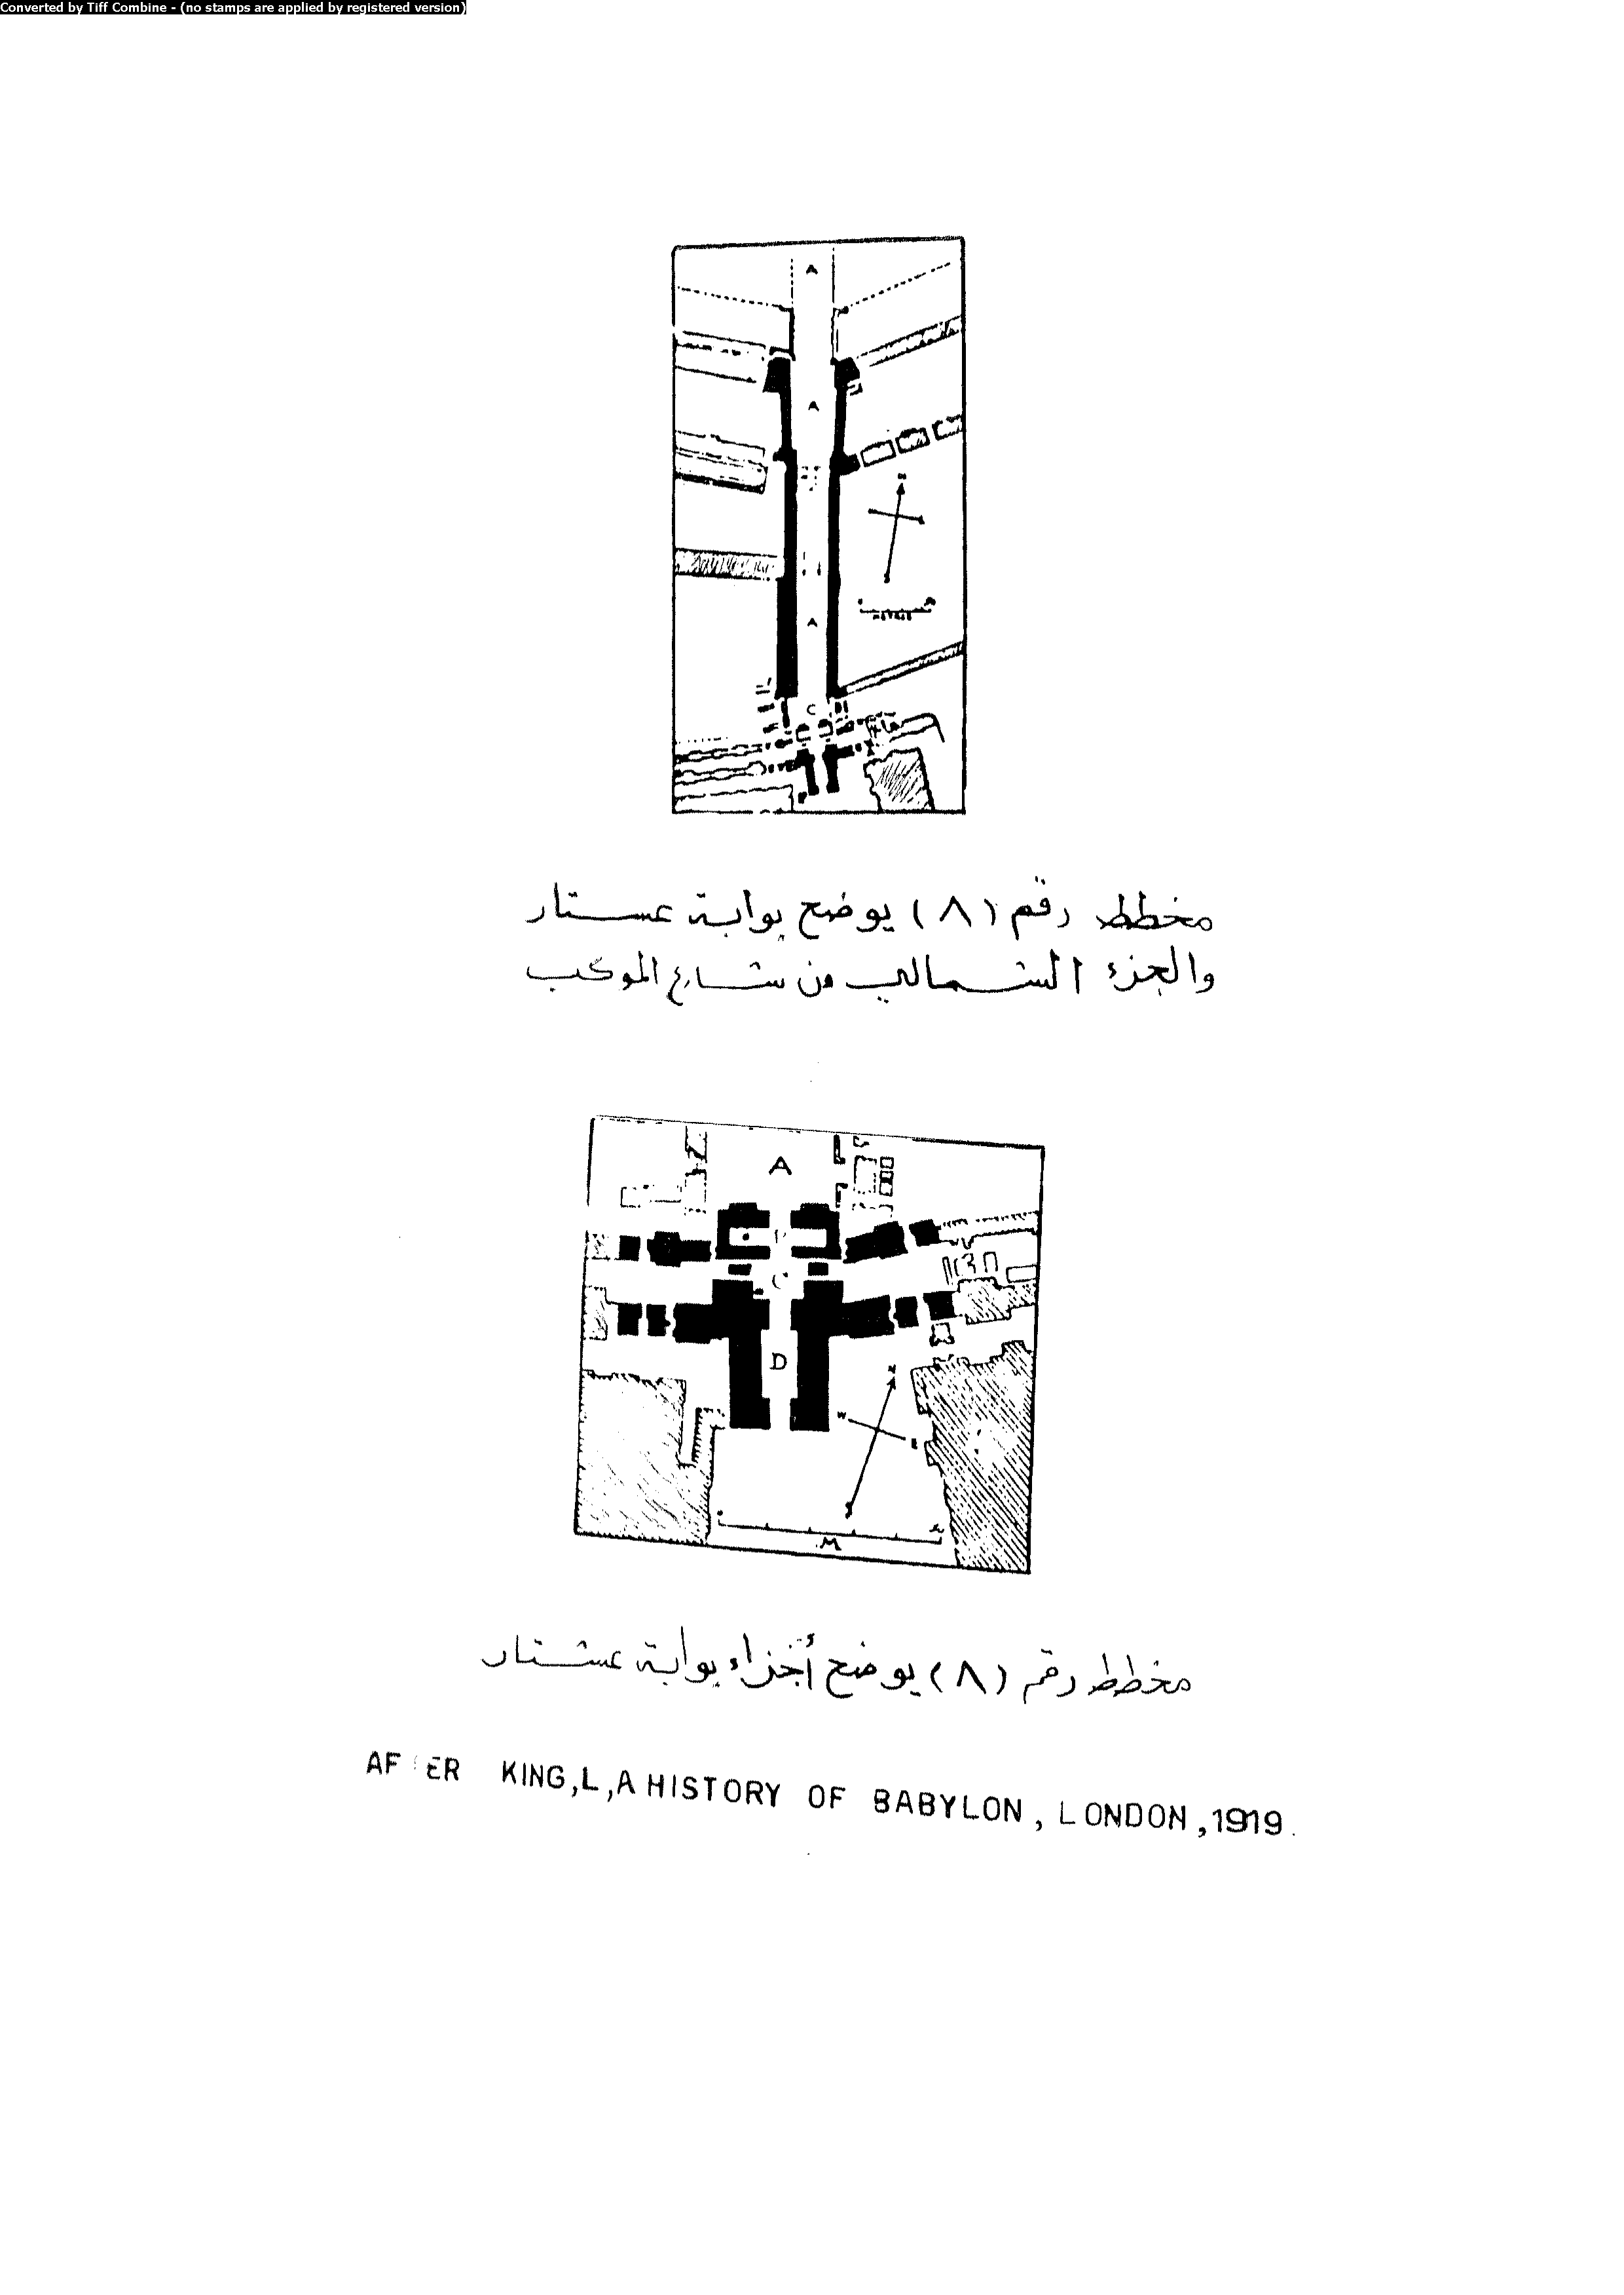 Converted by Tiff Combine - (no stamps are applied by registered version)
A
A
A
C
METRES
مخطط رقم (٨) يوضح بوابة عستار
والجزء الشمالي من شارع الموكب
A
C
D
N
W
E
S
M
مخطط رقم (٨) يوضح أجزاء بوابة عشتار
AF ER KING,L,A HISTORY OF BABYLON, LONDON,1919.